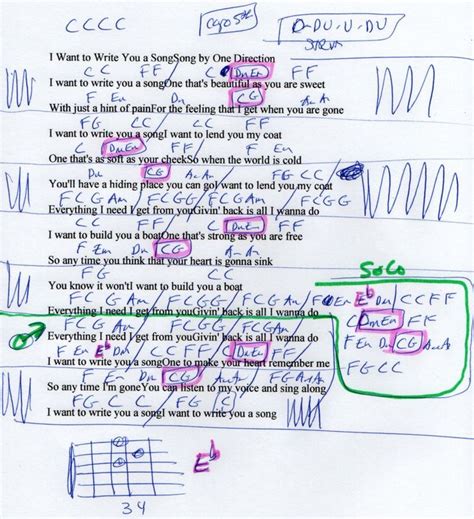 CCCC Capo 5th D-DU,U,DU
STRUM
I Want to Write You a SongSong by One Direction
C C FF / C DmEm FF
I want to write you a songOne that's beautiful as you are sweet
F Em Dm CG Am Am
With just a hint of painFor the feeling that I get when you are gone
FG CC / CC FF
I want to write you a songI want to lend you my coat
C DmEm / FF F Em
One that's as soft as your cheekSo when the world is cold
Dm CG Am Am FG CC /
You'll have a hiding place you can goI want to lend you my coat
FCGAm / FCGG / FCGAm / FCGG
Everything I need I get from youGivin' back is all I wanna do
CC FF / C DmEm FF
I want to build you a boatOne that's strong as you are free
F Em Dm CG Am Am
So any time you think that your heart is gonna sink
FG CC SOLO
You know it won'tI want to build you a boat
FC G Am / FCGG / FCGAm / F Em Eb Dm / CC FF
Everything I need I get from youGivin' back is all I wanna do
C DmEm FF
FCGAm / FCGG / FCGAm / FCGG
Everything I need I get from youGivin' back is all I wanna do
F Em Dm CG Am Am
F Em Eb Dm / CC FF / C DmEm FF
I want to write you a songOne to make your heart remember me
FG CC
F Em Dm CG Am Am FG Am
So any time I'm goneYou can listen to my voice and sing along
FG C C / FG C
I want to write you a songI want to write you a song
Eb
3 4